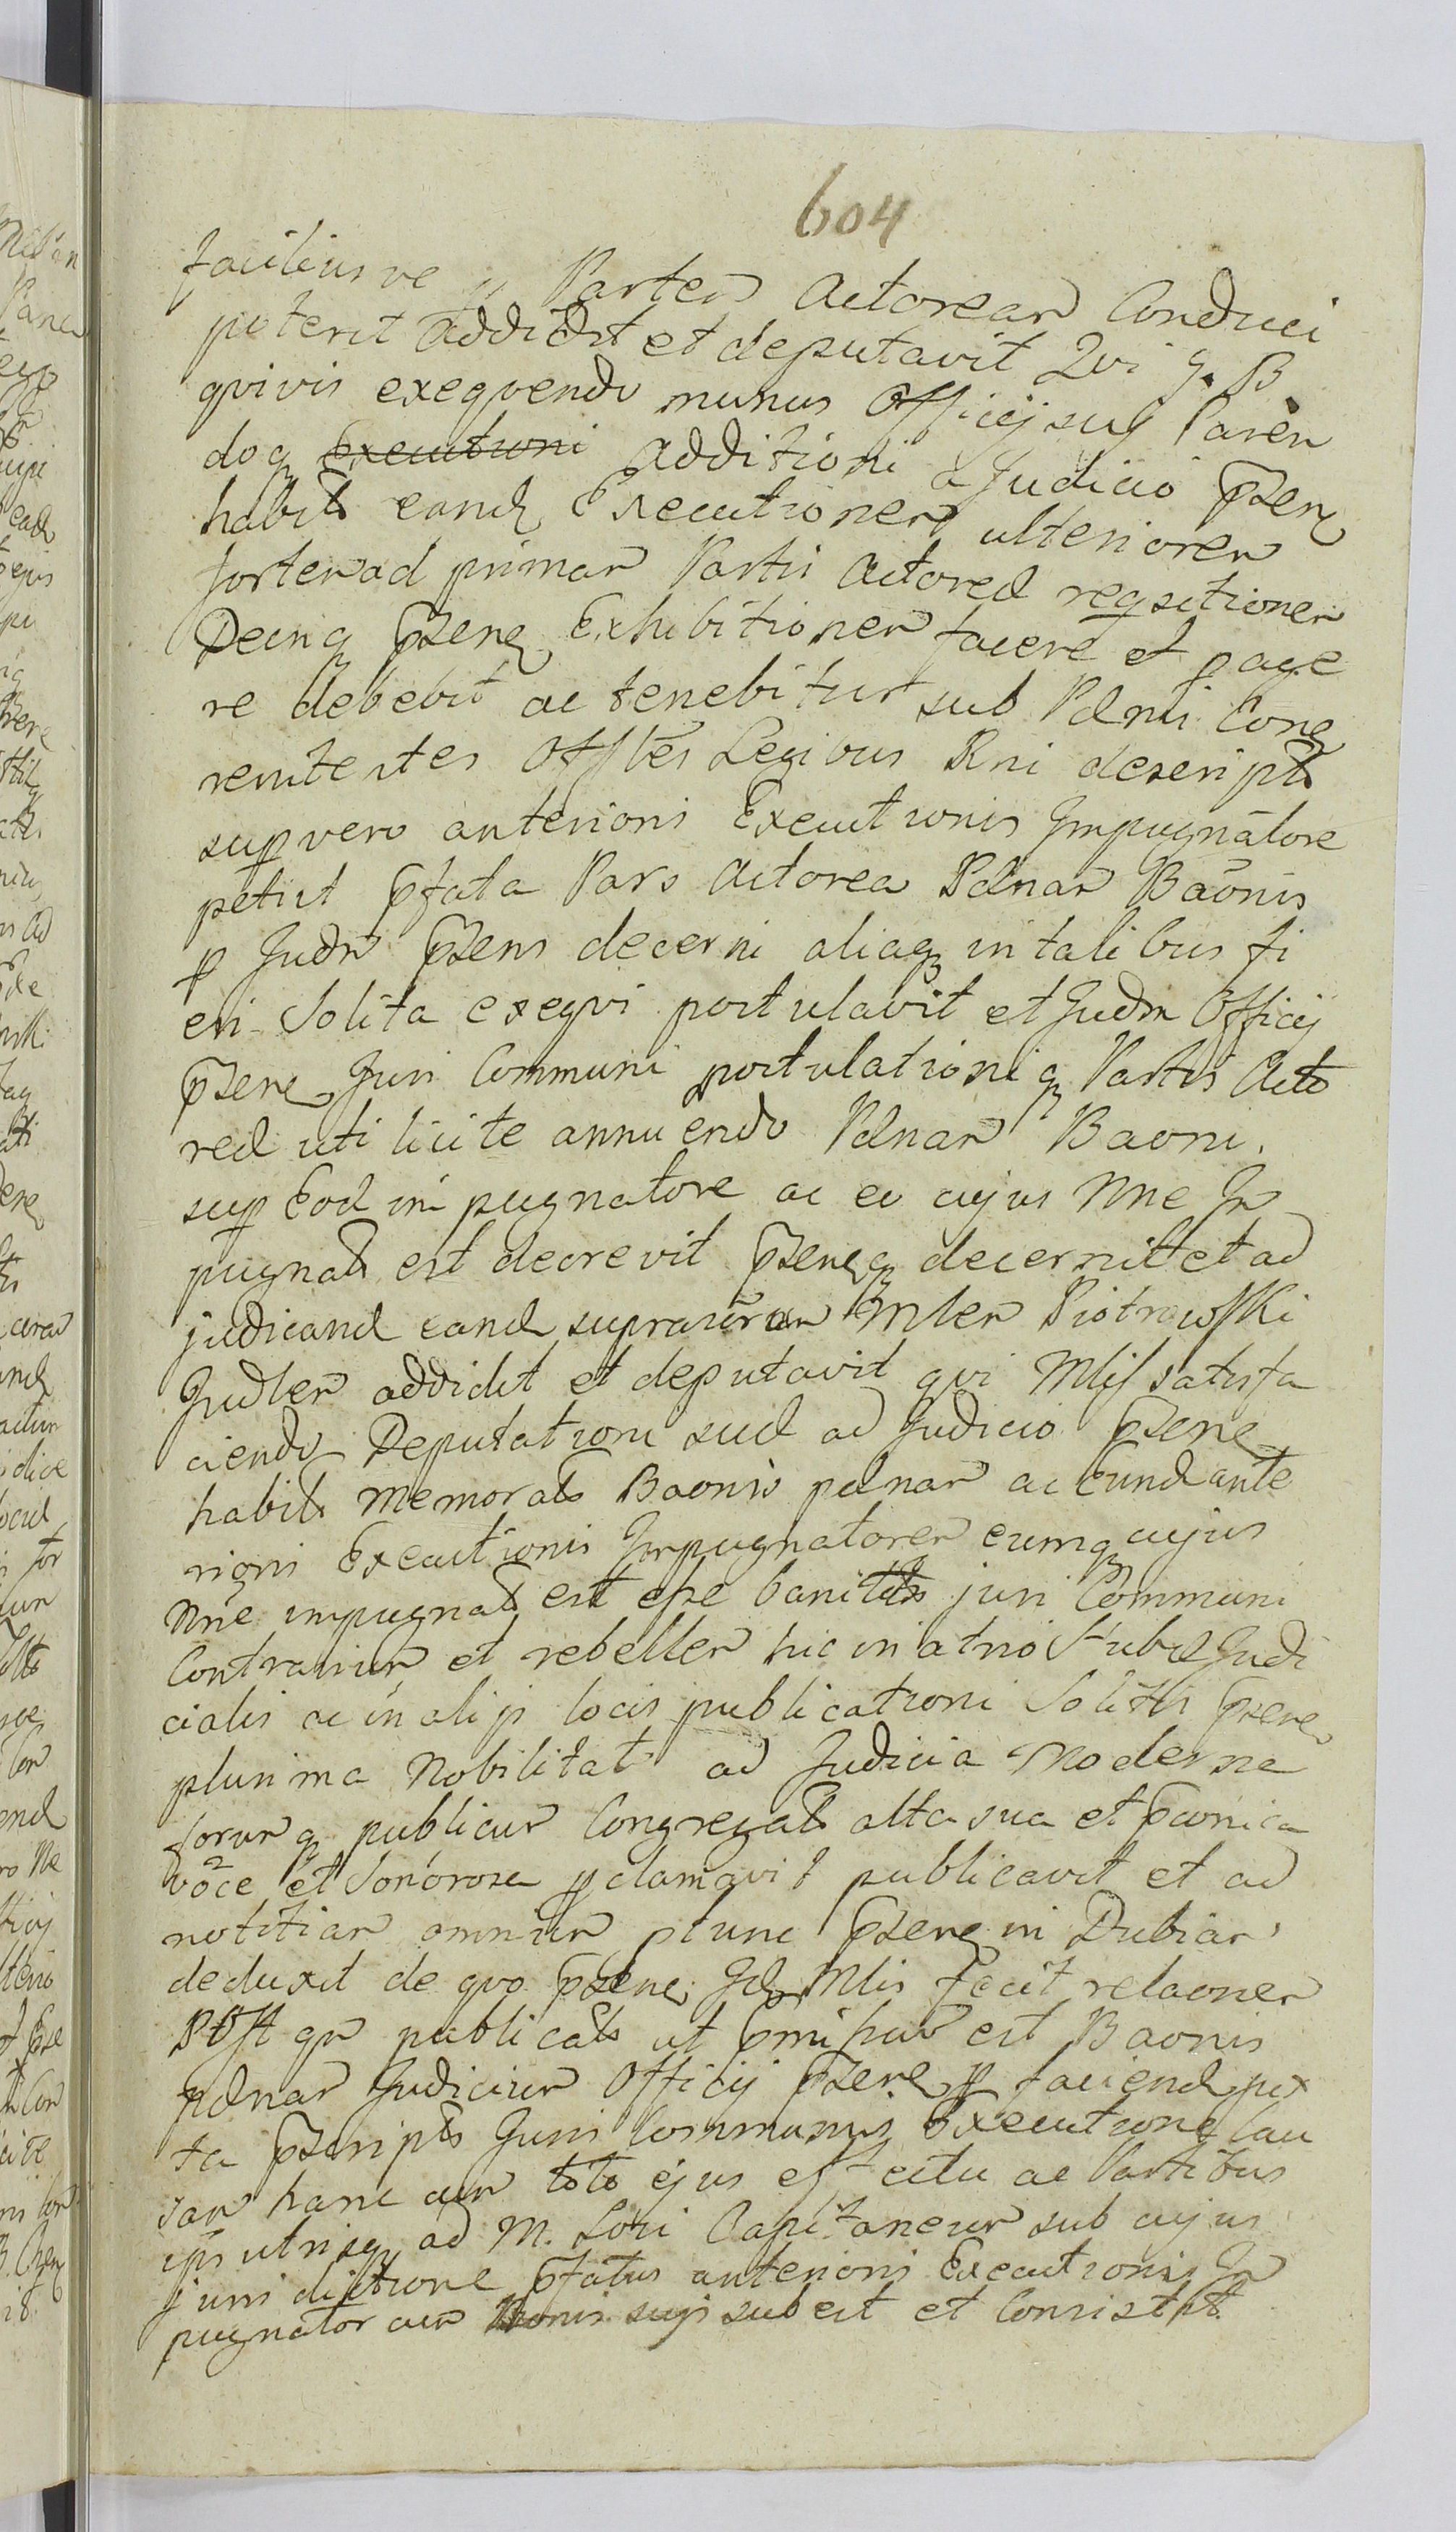 604
faciliusve p Partem Actoream Conduci
poterit addidit et deputavit Qui G. B
qvivis exeqvendo munus Officij suij Paren
doq Executioni additioni a Judicio psen
habit eand Executionem ulteriorem
fortem ad primam Partis Actorea reqsitionem
Decrq psene Exhibitionem facere et page
re debebit ac tenebitur sub Pdnis Cong
renitentes Offles Legibus Rni descript
sup vero anterioris Executionis Impugnatore
petiit pfata Pars Actorea Pdnam Baonis
p Judm psens decerni aliaq in talibus fi
eri Solita exeqvi postulavit et Judm Officij
psene Juri Communi postulationiq Partis Acto
rea uti licite annuendo Pdnam Baoni.
sup Eod impugnatore ac eo cujus Nne Im
pugnat est decrevit pseneq decernit et ad
judicand eand supra Mlem Piotrowski
Judlem addidit et deputavit qvi Mlis satisfa
ciendo Deputationi sua ad Judicio psene
habit memorat Baonis pdnam ac Eund ante
rioris Executionis Impugnatorem eumq cujus
Nne impugnat est esse banit juri Communi
Contrarium et rebellem hic in atrio Stuba Judi
cialis ac in alijs locis publicationi Solitis psene
plurima Nobilitat ad Judicia Moderna
forumq publicum Congregat alta sua et pconica
voce et Sonorosa pclamavit publicavit et ad
notitiam omnium ptunc psene in Dubiam
deduxit de qvo psene Id Mlis fecit relaonem
Post qm publicat ut pmissum est Baonis
pdnam Judicium Officij psene p facienda jux
ta pscript Juris Communis Executione Cau
sam hanc cum toto ejus effectu ac Partibus
ips utrisq ad M. Loci Capitaneum sub cujus
juris dictione pfatus anterioris Executionis Im
pugnator cum bonis suis subest et Consistit